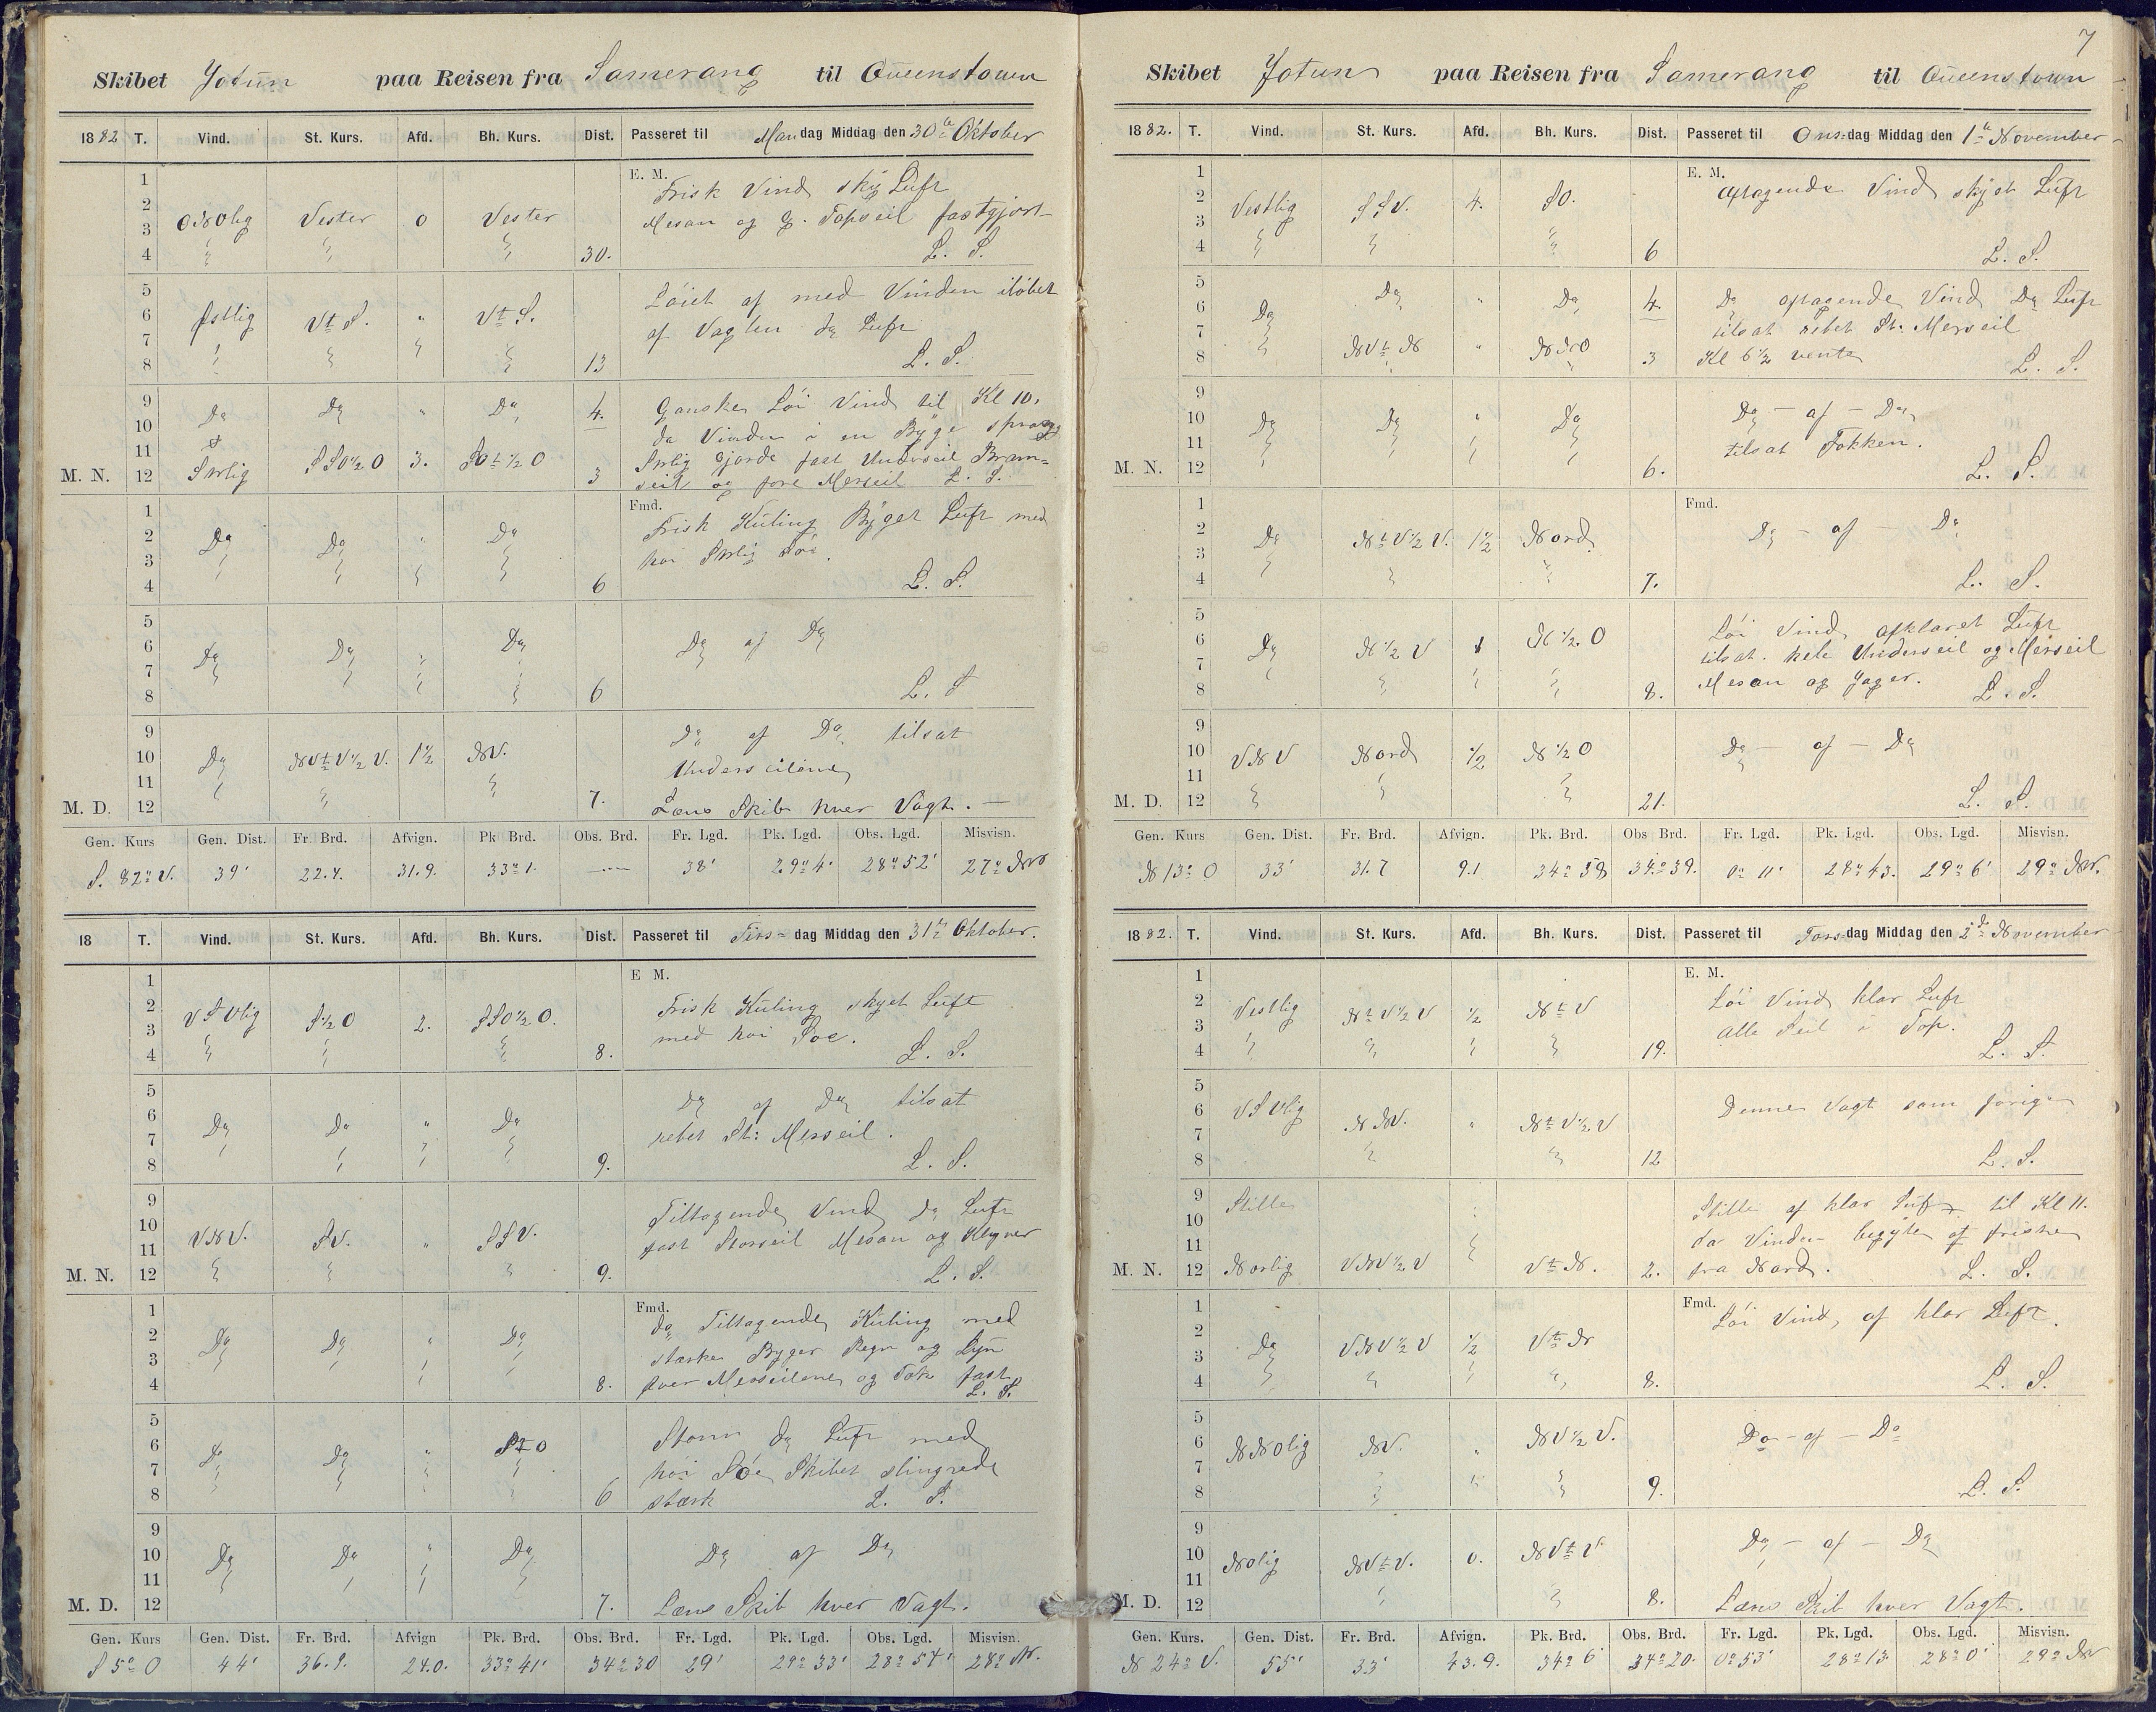 Skibet Jotun paa Reisen fra Samerang til Queenstown
1882 T. Vind. St. Kurs. Afd. Bh. Kurs. Dist. Passeret til Mandag Middag den 30te Oktober
E. M.
1 Frisk Vind sky Luft
2
3 ONOlig Vester 0 Vester Mesan og G. Topseil fastgjort
4 30. L. S.
5 Løiet af med Vinden iløbet
6 Østlig Vt S. " Vt S. af Vagten Do Luft
7
8 13 L. S.
9 Do Do " Do 4. Ganske Løi Vind til Kl 10,
10 da Vinden i en Byge sprang
11 Sørlig SSO½O 3. SOt½O Sørlig gjorde fast Underseil Bram=
M. N. 12 3 seil og fore Merseil L. S.
Fmd.
1 Frisk Kuling Byget Luft med
2 Do Do " Do
3 høi Sørlig Søe.
4 6 L. S.
5
6 Do Do " Do Do af Do
7
8 6 L. S
9 Do af Do tilsat
10 Do NVtV½V. 1½ NV.
11 Underseilene
M. D. 12 7. Læns Skib hver Vagt. —
Gen. Kurs Gen. Dist. Fr. Brd. Afvign. Pk Brd. Obs. Brd. Fr. Lgd. Pk. Lgd. Obs. Lgd. Misvisn.
S. 82° V. 39' 31.9. 33° 1. — 38' 29° 4' 28° 52' 27° NV
18 T. Vind. St. Kurs. Afd. Bh. Kurs. Dist. Passeret til Tirs- dag Middag den 31te Oktober.
E M.
1
2 VSVlig S½O 2. SSO½O. Frisk Kuling skyet Luft
3 med høi Søe.
4 8. L. S.
5 Do af Do tilsat
6 Do Do " Do
7 rebet St: Merseil.
8 9. L. S.
9 Tiltagende Vind Do Luft
10 VNV. SV. " SSV.
11 fast Storseil Mesan og Klyver
M. N. 12 9. L. S.
Fmd.
1 Do Tiltagende Kuling med
2 Do Do " Do
3 stærke Byger Regn og Lyn
4 8. Merseilene og Fok fast L. S.
5 Storm Do Luft med
6 Do Do " StO
7 høi Søe, Skibet slingrede
8 6 stærk L. S.
9
10 Do Do " Do Do af Do
11
M. D. 12 7. Læns Skib hver Vagt.
Gen. Kurs Gen. Dist. Fr. Brd. Afvign Pk. Brd. Obs. Brd. Fr. Lgd. Pk. Lgd. Obs. Lgd. Misvisn.
S 5° O 44' 24.0. 33° 41' 34° 30 29' 29° 33' 28° 54' 28° NV.
7
Skibet Jotun paa Reisen fra Samerang til Queenstown
1882. T. Vind. St. Kurs. Afd. Bh. Kurs. Dist. Passeret til Onsdag Middag den 1te November
E. M.
1 Aftagende Vind skyet Luft
2 Vestlig SSV. 4. SO.
3
4 6 L. S.
5 Do " Do 4. Do aftagende Vind Do Luft
6 Do
7 tilsat rebet St: Merseil
8 NVtN " NNO 3 Kl 6½ vente L. S.
9
10 Do Do " Do Do — af — Do
11 tilsat Fokken.
M. N. 12 6. L. S.
Fmd.
1
2 Do NtV½V. 1½ Nord Do — af — Do
3
4 7. L. S.
5 Løi Vind, afklaret Luft
6 Do N½V 1 N½O tilsat hele Underseil og Merseil
7 Mesan og Jager.
8 8. L. S.
9
10 VNV Nord ½ N½O Do — af — Do
11
M. D. 12 21. L. S.
Gen. Kurs Gen. Dist. Fr. Brd. Afvign. Pk. Brd. Obs Brd. Fr. Lgd. Pk. Lgd. Obs. Lgd. Misvisn.
N 13° O 33' 31.7 9.1 34° 58 34° 39. 0° 11' 28° 43. 29° 6' 29° NV.
1882. T. Vind. St. Kurs. Afd. Bh. Kurs. Dist. Passeret til Torsdag Middag den 2de November
E. M.
1 Løi Vind klar Luft
2 Vestlig NtV½V ½ NtV
3 alle Seil i Top.
4 19. L. S.
5
6 VSVlig NNV. " NtV½V Denne Vagt som forige
7
8 12 L. S.
9 Stille Stille af klar Luft til Kl 11.
10
11 da Vinden begyte at friske
M. N. 12 Norlig VNV½V VtN. 2. fra Nord. L. S.
Fmd.
1 Løi Vind, af klar Luft.
2 Do VNV½V ½ VtN
3
4 8. L. S.
5
6 NNOlig NV. " NV½V. Do - af - Do
7
8 9. L. S.
9
10 NOlig NVtV. 0. NVtV Do — af — Do
11
M. D. 12 8. Læns Skib hver Vagt.
Gen. Kurs. Gen. Dist. Fr. Brd. Afvign. Pk. Brd. Obs. Brd. Fr. Lgd. Pk. Lgd. Obs. Lgd. Misvisn.
N 24° V. 55' 33' 43.9. 34° 6' 34° 20. 0° 53' 28° 13 28° 0' 29° NV